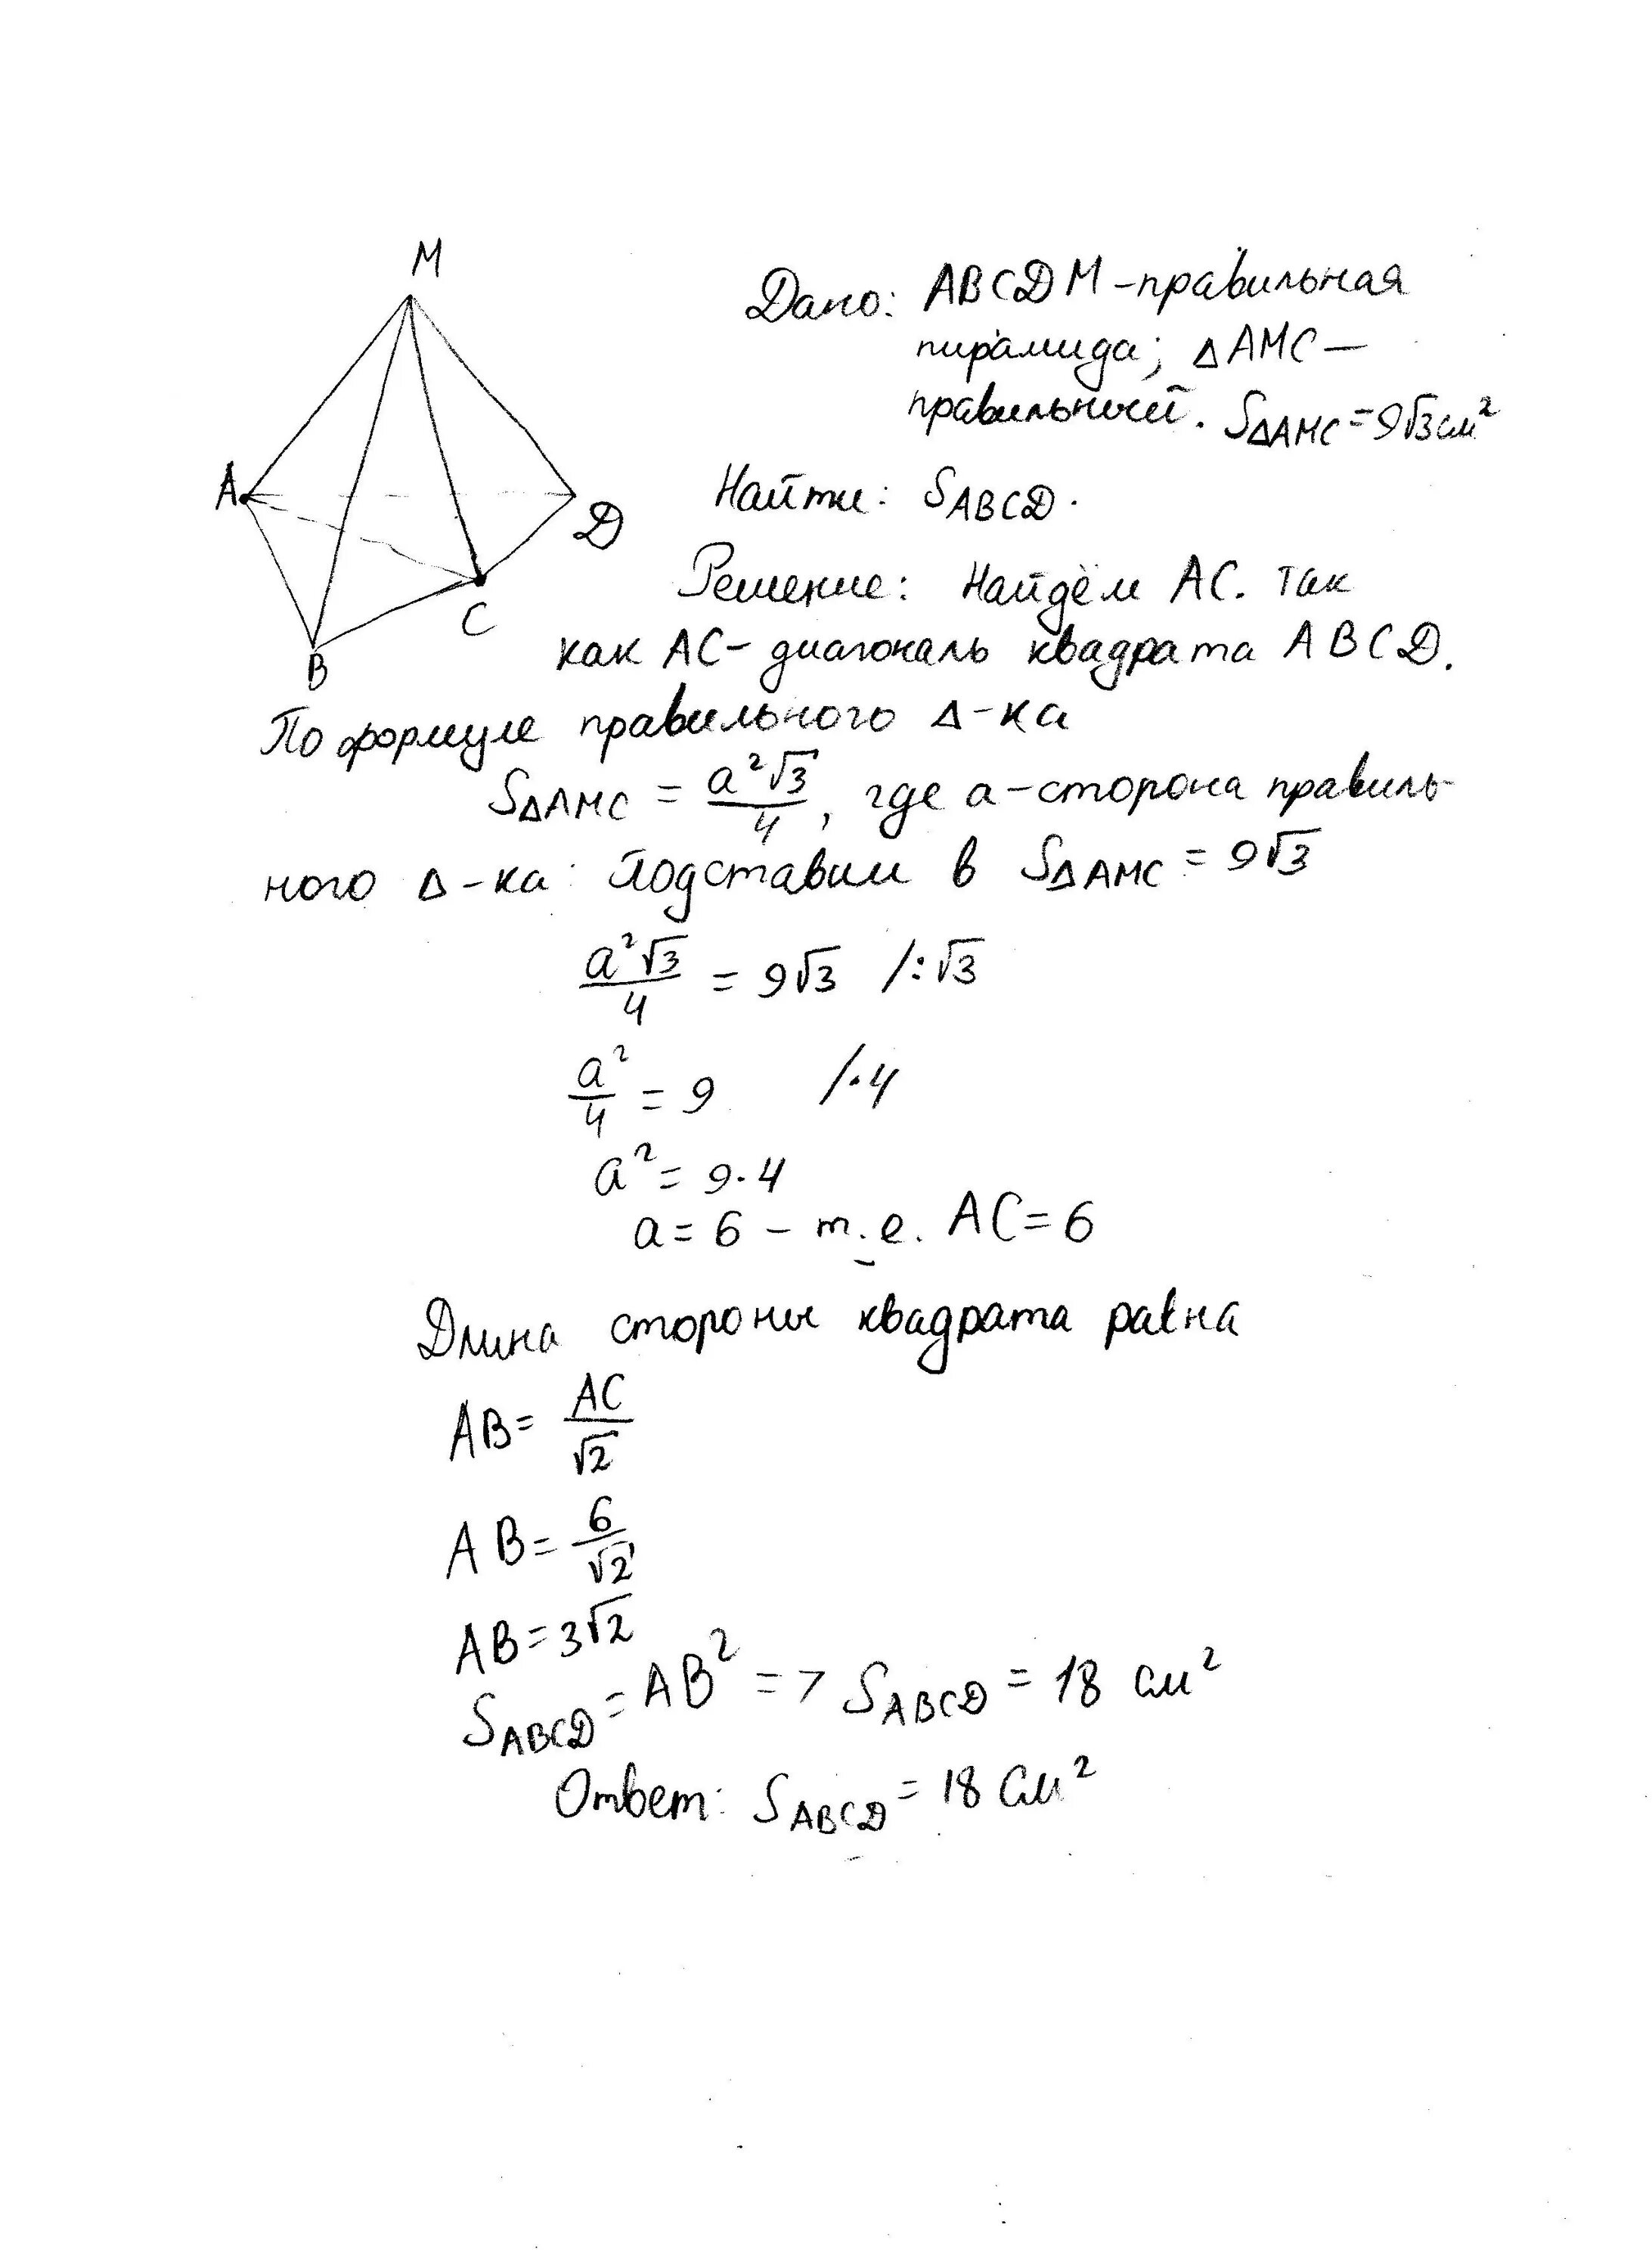 M
A
D
C
B
Дано: ABCDM - правильная
пирамида; △AMC -
правильный. S△AMC = 9√3 см²
Найти: SABCD.
Решение: Найдём AC. Так
как AC - диагональ квадрата ABCD.
По формуле правильного △-ка
S△AMC = a²√3/4, где a - сторона правиль-
ного △-ка. Подставим в S△AMC = 9√3
a²√3/4 = 9√3 /:√3
a²/4 = 9 /·4
a² = 9·4
a = 6 - т.е. AC = 6
Длина стороны квадрата равна
AB = AC/√2
AB = 6/√2
AB = 3√2
SABCD = AB² => SABCD = 18 см²
Ответ: SABCD = 18 см²